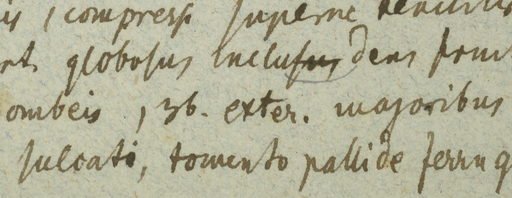 is, compress. superne
globosus inclusus dens
ombeis, 36. exter. majoribus
sulcati, tomento pallide ferrug